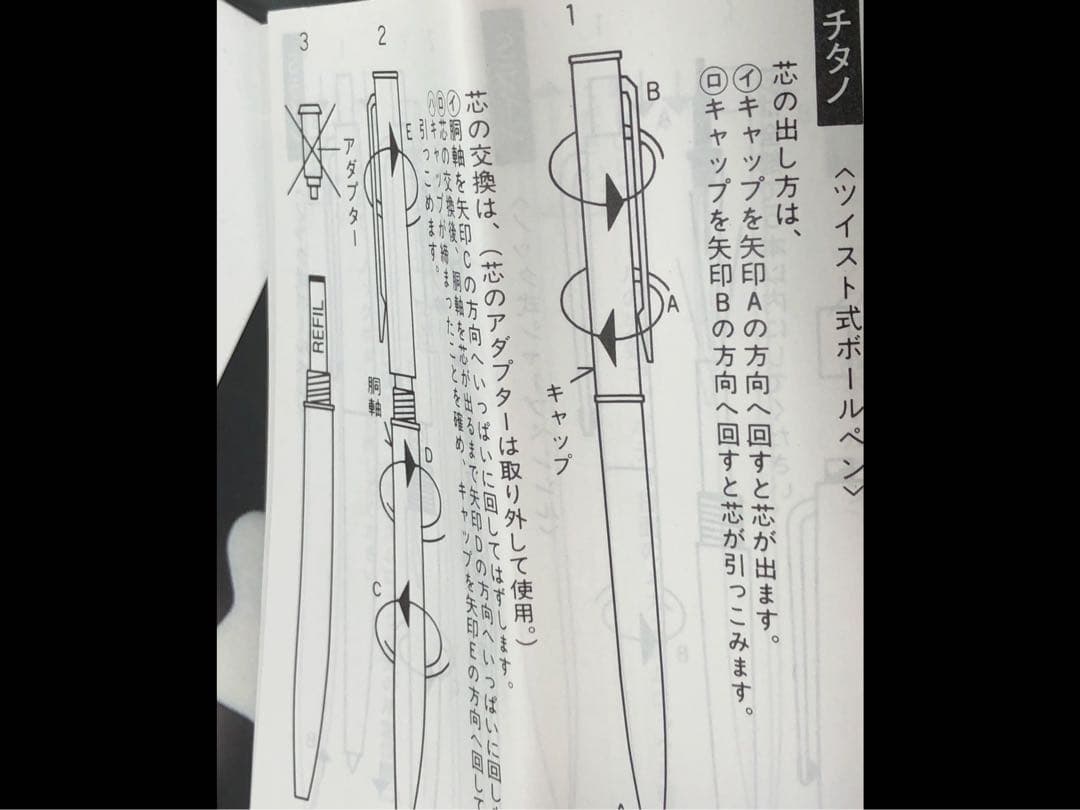 チタノ
〈ツイスト式ボールペン〉
芯の出し方は、
㋑キャップを矢印Aの方向へ回すと芯が出ます。
㋺キャップを矢印Bの方向へ回すと芯が引っこみます。
1
B
A
キャップ
芯の交換は、(芯のアダプターは取り外して使用。)
㋑胴軸を矢印Cの方向へいっぱいに回してはずします。
㋺芯の交換後、胴軸を芯が出るまで矢印Dの方向へいっぱいに回し
㋩キャップが締まったことを確め、キャップを矢印Eの方向へ回して
引っこめます。
2
E
胴軸
D
C
3
アダプター
REFIL